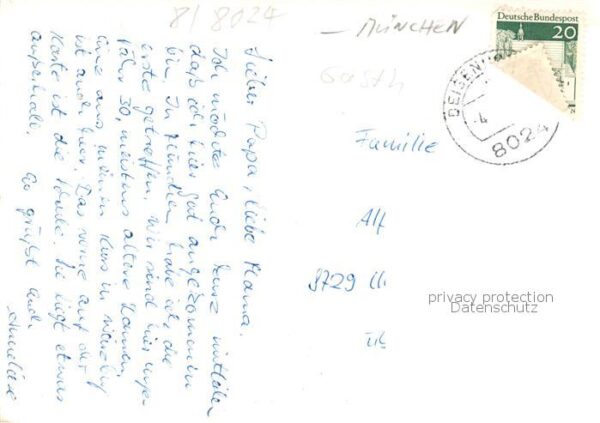 8/8024
- MÜNCHEN
Gasth
Deutsche Bundespost
20
DEISEN
8024
Lieber Papa, liebe Mama.
Ich möchte Euch kurz mitteilen
daß ich hier gut angekommen
bin. In München habe ich die
erste getroffen. Wir sind hier unge-
fähr 30, meistens ältere Damen,
eine aus meinem Kurs in Würzburg
ist auch hier. Das vorne auf der
Karte ist die Schule. Sie liegt etwas
außerhalb.
Es grüßt Euch
Familie
Alf
8729
privacy protection
Datenschutz